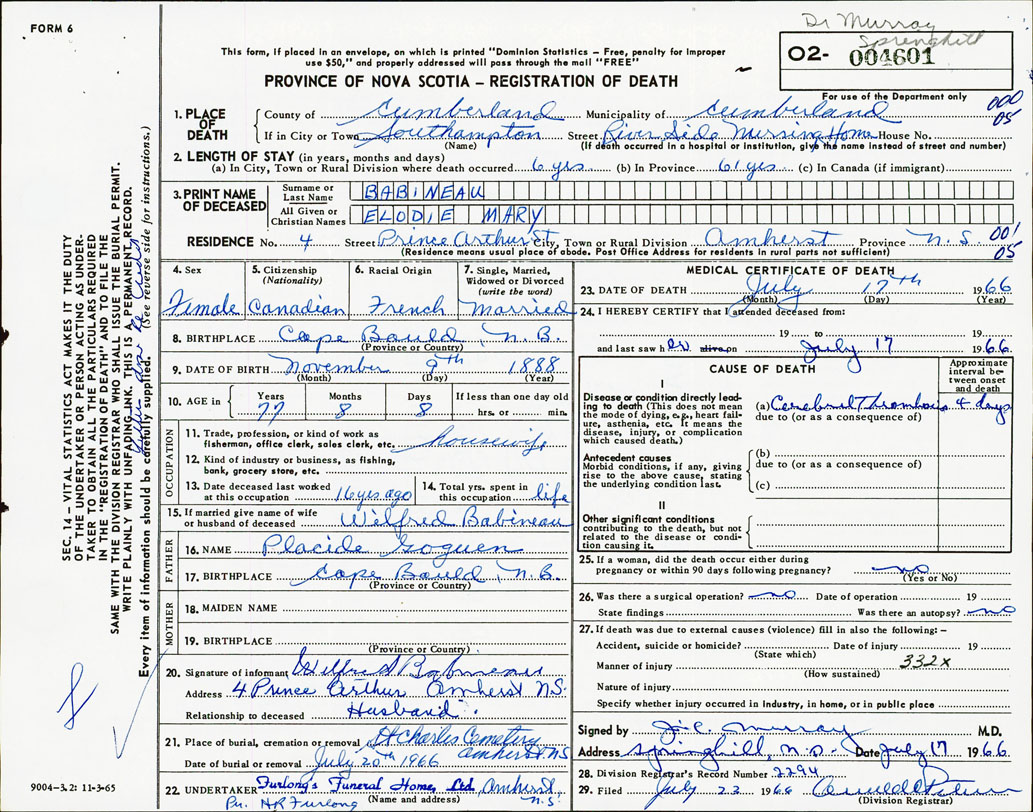 FORM 6
Dr Murray
Springhill
O2- 004601
This form, if placed in an envelope, on which is printed "Dominion Statistics – Free, penalty for improper
use $50," and properly addressed will pass through the mail "FREE"
PROVINCE OF NOVA SCOTIA – REGISTRATION OF DEATH
For use of the Department only
000
05
1. PLACE OF DEATH
County of Cumberland Municipality of Cumberland
If in City or Town Southampton Street River Side Nursing Home House No.
(Name) (If death occurred in a hospital or institution, give the name instead of street and number)
2. LENGTH OF STAY (in years, months and days)
(a) In City, Town or Rural Division where death occurred 6 yrs. (b) In Province 61 yrs. (c) In Canada (if immigrant)
3. PRINT NAME OF DECEASED
Surname or Last Name BABINEAU
All Given or Christian Names ELODIE MARY
RESIDENCE No. 4 Street Prince Arthur St City, Town or Rural Division Amherst Province N.S. 001
(Residence means usual place of abode. Post Office Address for residents in rural parts not sufficient) 05
4. Sex
Female
5. Citizenship
(Nationality)
Canadian
6. Racial Origin
French
7. Single, Married,
Widowed or Divorced
(write the word)
Married
8. BIRTHPLACE Cape Bauld, N.B.
(Province or Country)
9. DATE OF BIRTH November 9th 1888
(Month) (Day) (Year)
10. AGE in
Years Months Days If less than one day old
77 8 8 hrs. or min.
OCCUPATION
11. Trade, profession, or kind of work as
fisherman, office clerk, sales clerk, etc. housewife
12. Kind of industry or business, as fishing,
bank, grocery store, etc.
13. Date deceased last worked
at this occupation 16 yrs ago
14. Total yrs. spent in
this occupation life
15. If married give name of wife
or husband of deceased Wilfred Babineau
FATHER
16. NAME Placide Goguen
17. BIRTHPLACE Cape Bauld, N.B.
(Province or Country)
MOTHER
18. MAIDEN NAME
19. BIRTHPLACE
(Province or Country)
20. Signature of informant Wilfred Babineau
Address 4 Prince Arthur Amherst N.S.
Relationship to deceased Husband.
21. Place of burial, cremation or removal St Charles Cemetery
Amherst N.S
Date of burial or removal July 20th 1966
22. UNDERTAKER Furlong's Funeral Home, Ltd. Amherst,
(Name and address) N.S.
Per. H R Furlong
MEDICAL CERTIFICATE OF DEATH
23. DATE OF DEATH July 17th 1966
(Month) (Day) (Year)
24. I HEREBY CERTIFY that I attended deceased from:
19 to 19
and last saw her alive on July 17 1966.
CAUSE OF DEATH
Approximate
interval be-
tween onset
and death
I
Disease or condition directly lead-
ing to death (This does not
mean the mode of dying, e.g., heart fail-
ure, asthenia, etc. It means the
disease, injury, or complication
which caused death.)
(a) Cerebral Thrombosis 4 days
due to (or as a consequence of)
Antecedent causes
Morbid conditions, if any, giving
rise to the above cause, stating
the underlying condition last.
(b)
due to (or as a consequence of)
(c)
II
Other significant conditions
contributing to the death, but not
related to the disease or condi-
tion causing it.
25. If a woman, did the death occur either during
pregnancy or within 90 days following pregnancy? no
(Yes or No)
26. Was there a surgical operation? no Date of operation 19
State findings Was there an autopsy? no
27. If death was due to external causes (violence) fill in also the following: –
Accident, suicide or homicide? Date of injury 19
(State which) 332x
Manner of injury
(How sustained)
Nature of injury
Specify whether injury occurred in industry, in home, or in public place
Signed by J. C. Murray M.D.
Address Springhill, N.S. Date July 17 1966
28. Division Registrar's Record Number 2294
29. Filed July 23 1966
(Division Registrar)
SEC. 14 – VITAL STATISTICS ACT MAKES IT THE DUTY
OF THE UNDERTAKER OR PERSON ACTING AS UNDER-
TAKER TO OBTAIN ALL THE PARTICULARS REQUIRED
IN THE "REGISTRATION OF DEATH" AND TO FILE THE
SAME WITH THE DIVISION REGISTRAR WHO SHALL ISSUE THE BURIAL PERMIT.
WRITE PLAINLY WITH UNFADING INK. THIS IS A PERMANENT RECORD.
Every item of information should be carefully supplied. (See reverse side for instructions.)
9004-3.2: 11-3-65